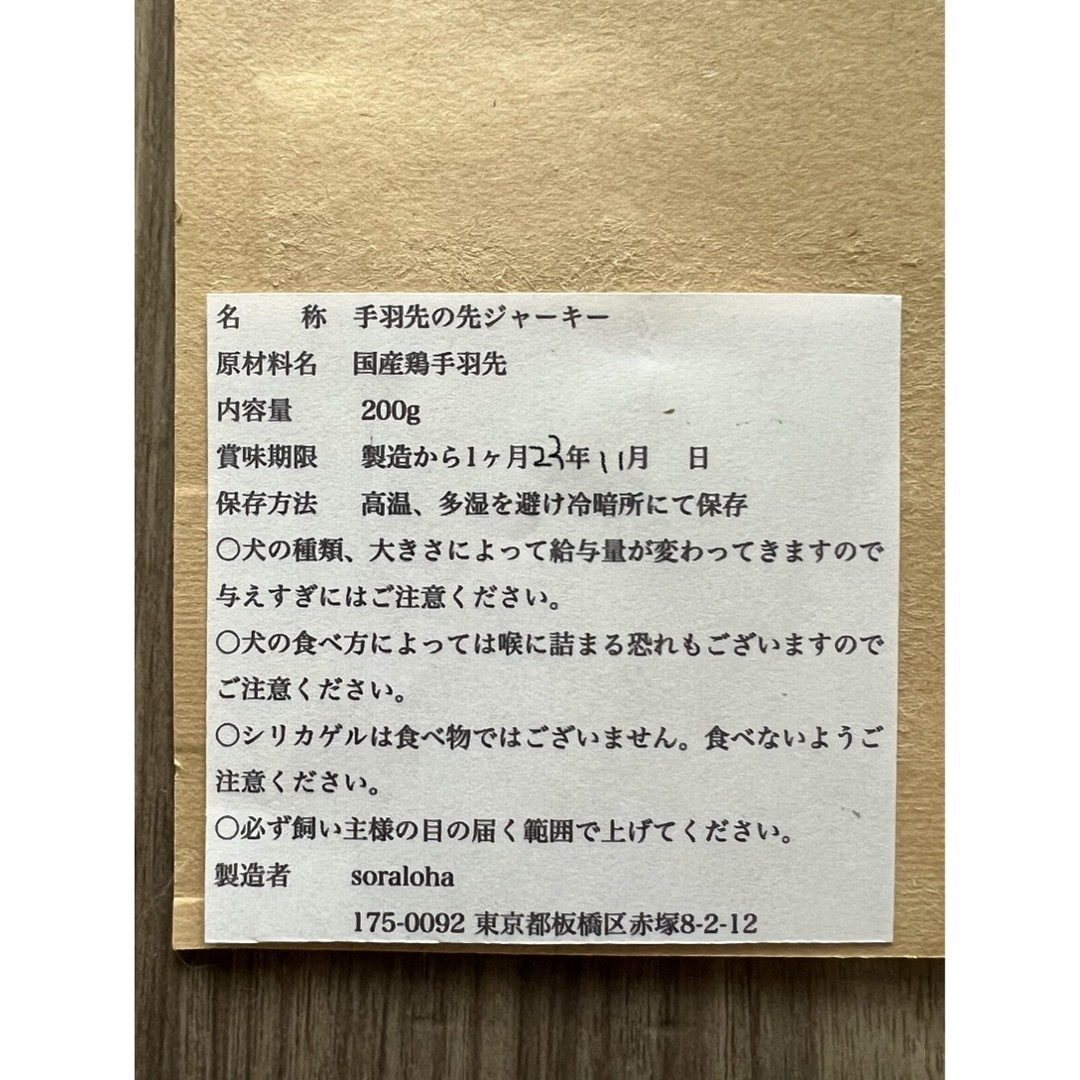 名　　称　手羽先の先ジャーキー
原材料名　国産鶏手羽先
内容量　　200g
賞味期限　製造から1ヶ月23年11月　日
保存方法　高温、多湿を避け冷暗所にて保存
〇犬の種類、大きさによって給与量が変わってきますので
与えすぎにはご注意ください。
〇犬の食べ方によっては喉に詰まる恐れもございますので
ご注意ください。
〇シリカゲルは食べ物ではございません。食べないようご
注意ください。
〇必ず飼い主様の目の届く範囲で上げてください。
製造者　　soraloha
175-0092 東京都板橋区赤塚8-2-12